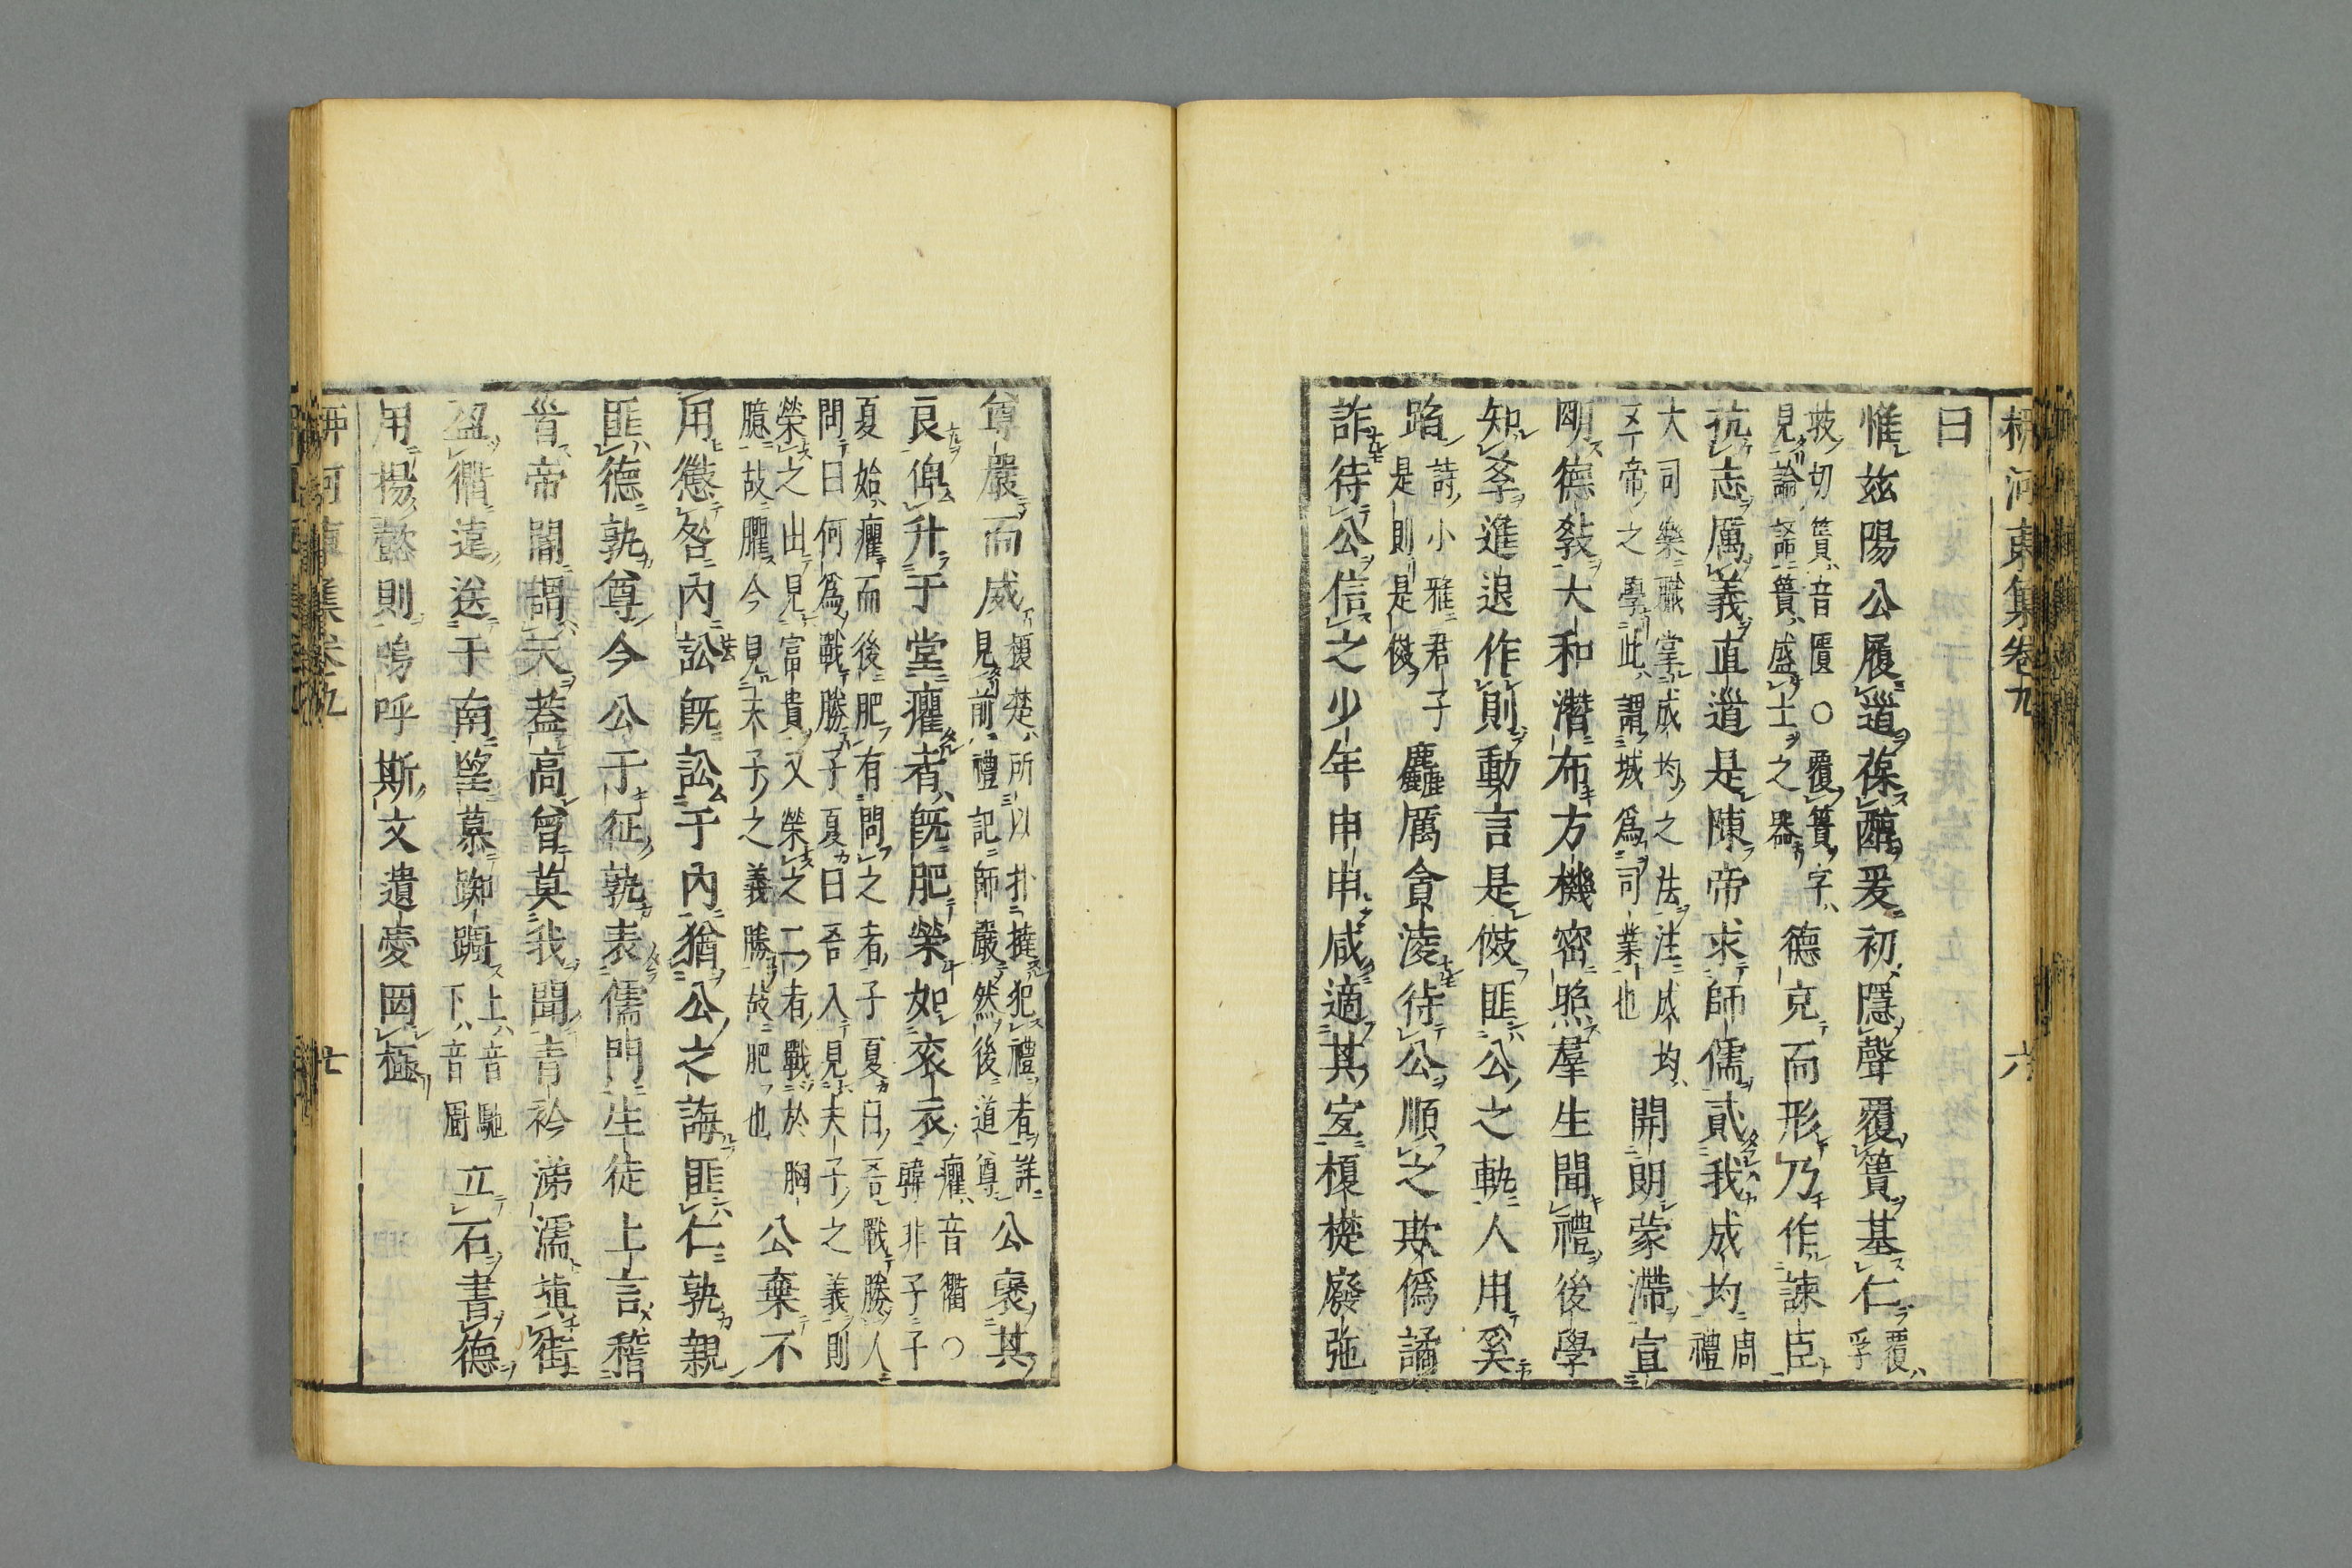 柳河東集卷九 六
曰
惟茲陽公履道葆醇爰初隱聲覆簣基仁覆孚
芰切簣音匱○覆簣字
見論語簣盛土之器德充而形乃作諫臣
抗志厲義直道是陳帝求師儒貳我成均周禮
大司樂職掌成均之法注成均
五帝之學此謂城爲司業也開朗蒙滯宣
明德教大和潛布方機密照羣生聞禮後學
知孝進退作則動言是傚匪公之軌人用奚
蹈詩小雅君子
是則是傚麤厲貪凌待公順之欺僞譎
詐待公信之少年申申咸適其宜榎楚廢弛
尊嚴而威榎楚所以扑撻犯禮者詳
見前禮記師嚴然後道尊公褒其
良俾升于堂癯者既肥榮如衮衣癯音衢○
韓非子子
夏始癯而後肥有問之者子夏曰吾戰勝人
問曰何爲戰勝子夏曰吾入見夫子之義則
榮之出見富貴又榮之二者戰於胸
臆故臞今見夫子之義勝故肥也公棄不
用懲咎內訟既訟于內猶公之誨匪仁孰親
匪德孰尊今公于征孰表儒門生徒上言稽
首帝閽謂天蓋高曾莫我聞青衿涕濡塡街
盈衢遠送于南望慕踟躕上音馳
下音厨立石書德
用揚懿則嗚呼斯文遺愛罔極
柳河東集卷九